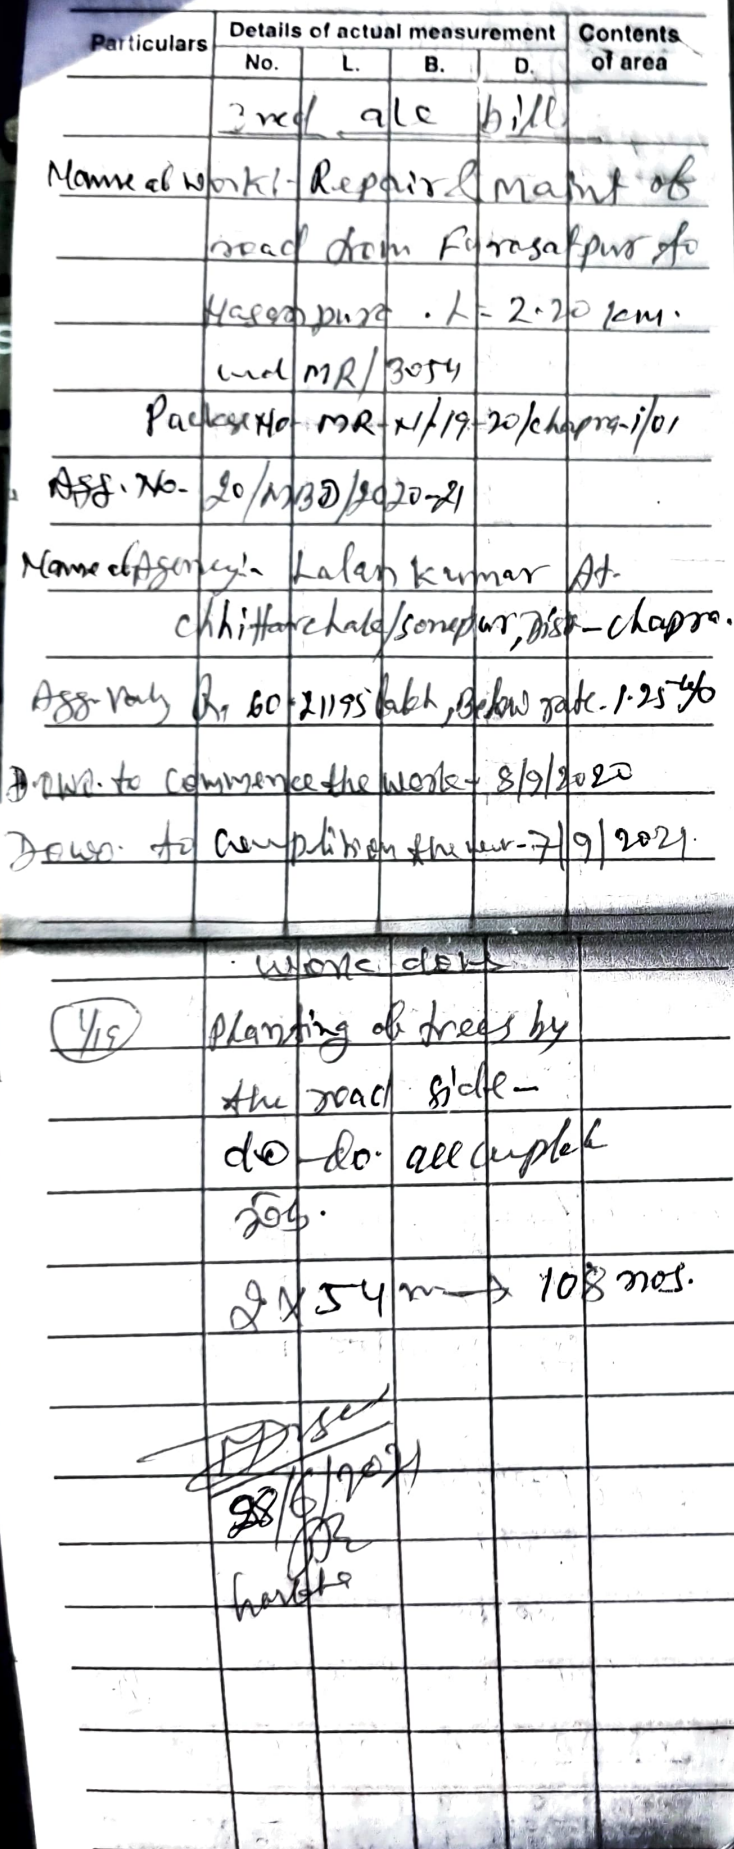 Particulars Details of actual measurement Contents of area
No. L. B. D.
2nd a/c bill
Name of work:- Repair & maint of
road from Farasatpur to
Hasanpura . L= 2.20 km.
und MR/3054
Package No- MR-N/19-20/chapra-1/01
Agg. No- 20/MBD/2020-21
Name of Agency:- Lalan kumar At-
chhittarchak/sonepur, Dist-chapra.
Agg. Valu Rs 60.21195 lakh, Below rate- 1.25%
D.ow. to commence the work- 8/9/2020
Dow. to complition the - 7/9/2021.
work done
1/15 planting of trees by
the road side-
do-do. all complete
job.
2x54 → 108 nos.
28/6/2021
JE